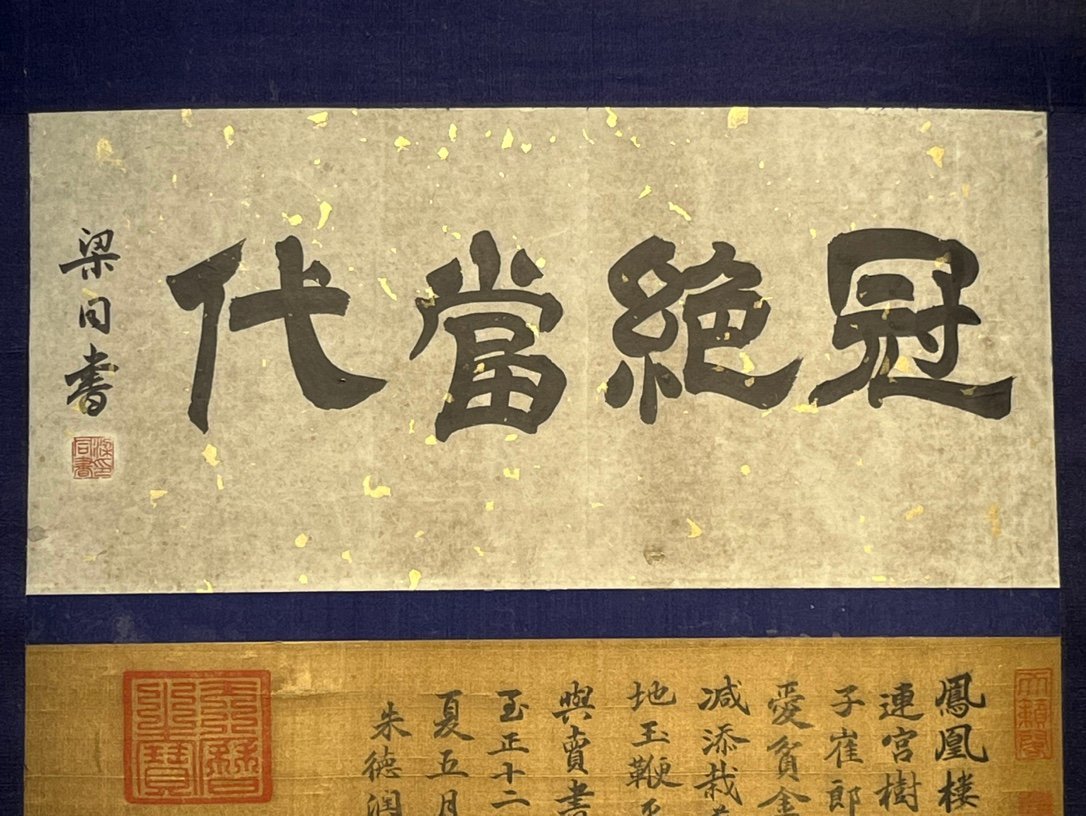 冠絕當代
梁同書
梁同書印
天籟閣
鳳凰楼
連宮樹
子崔郎
愛貧金
减添栽
地玉鞭
與賣書
至正十二
夏五月
朱德潤